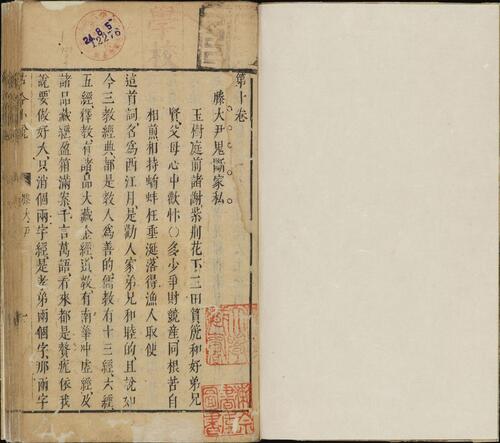 第十卷
滕大尹鬼斷家私
玉樹庭前諸謝紫荆花下三田貟箎和好弟兄
賢父母心中歡忭〇多少爭財競產同根苦自
相煎相持鷸蚌枉垂涎落得漁人取便
這首詞名爲西江月是勸人家弟兄和睦的且說如
今三教經典都是教人爲善的儒教有十三經六經
五經釋教有諸品大藏金經道教有南華冲虛經及
諸品藏經盈箱滿案千言萬語看來都是贅疣依我
說要做好人只消個兩字經是孝弟兩個字那兩字
古今小說
滕大尹
一
24.8.5
12276